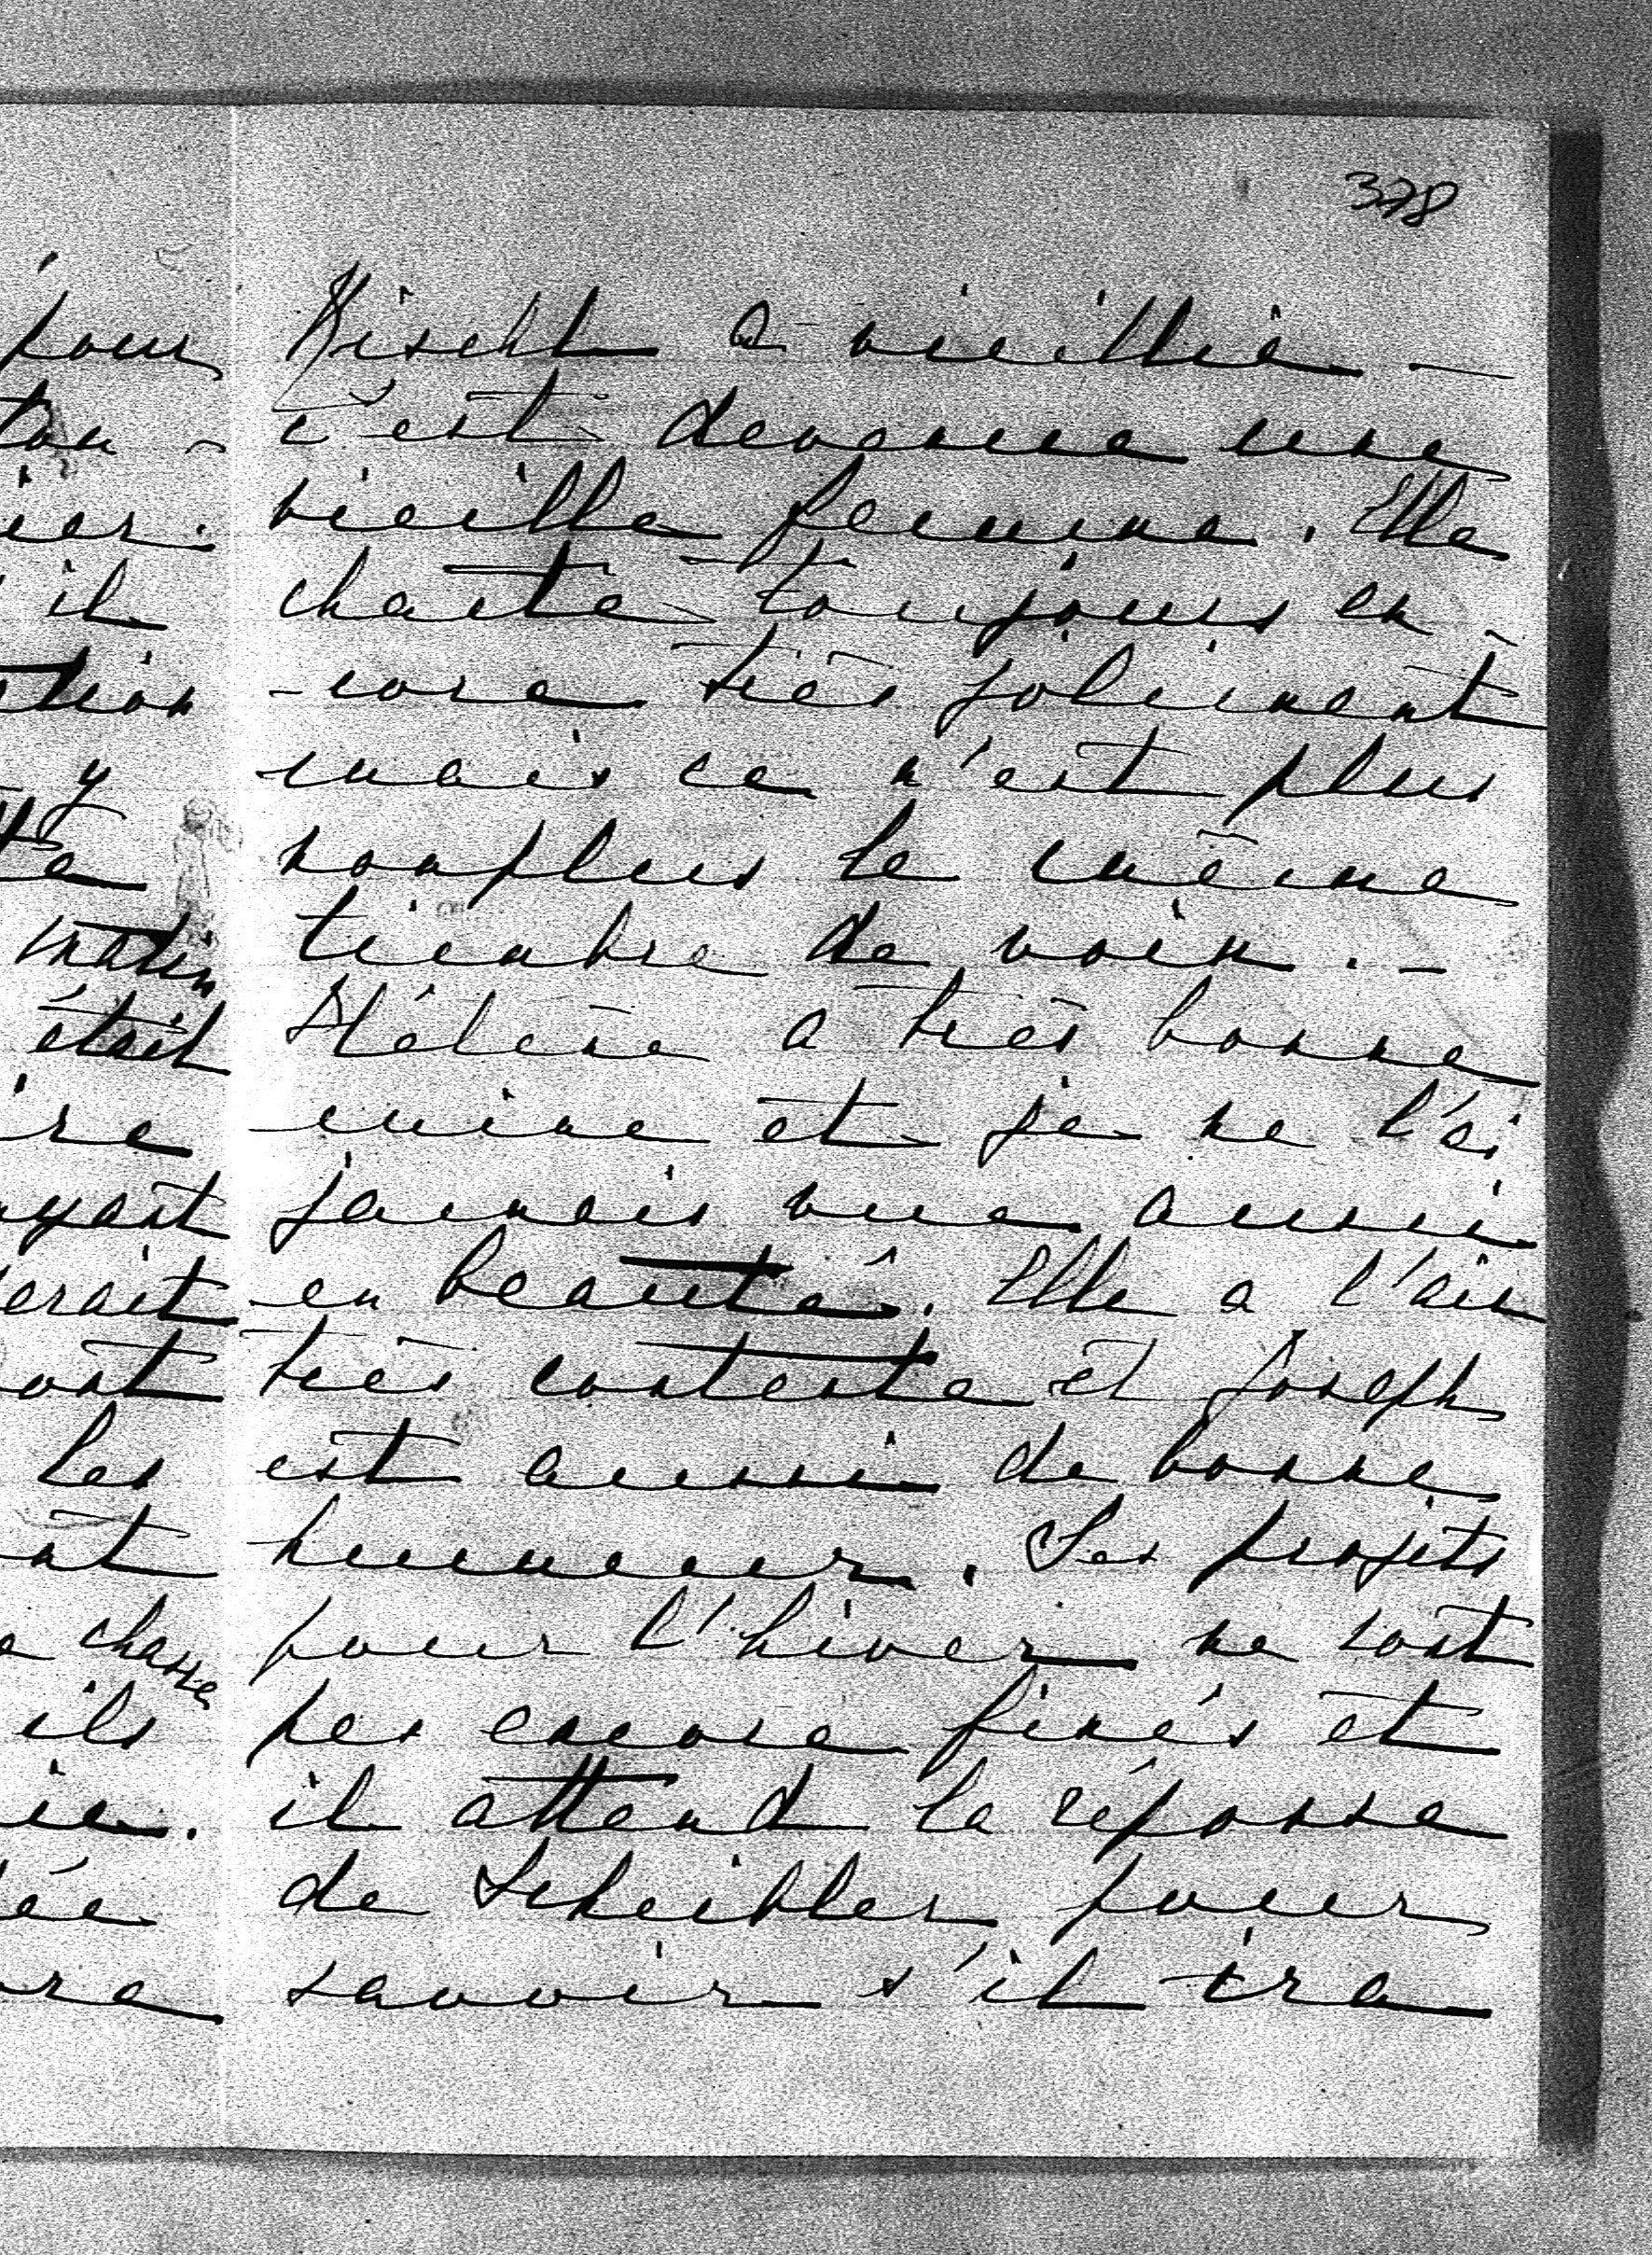 378
a vieillie —
c'est devenue une
vieille femme. Elle
chante toujours en-
-core très joliment
mais ce n'est plus
nonplus le même
timbre de voix. -
Hélène a très bonne
mine et je ne l'ai
jamais vue aussi
en beauté. Elle a l'air
très contente et Joseph
est aussi de bonne
humeur. Ses projets
pour l'hiver ne sont
pas encore fixés et
il attend la réponse
de Scheibler pour
savoir s'il ira
pour
il
y
matin
était
les
chasse
ils